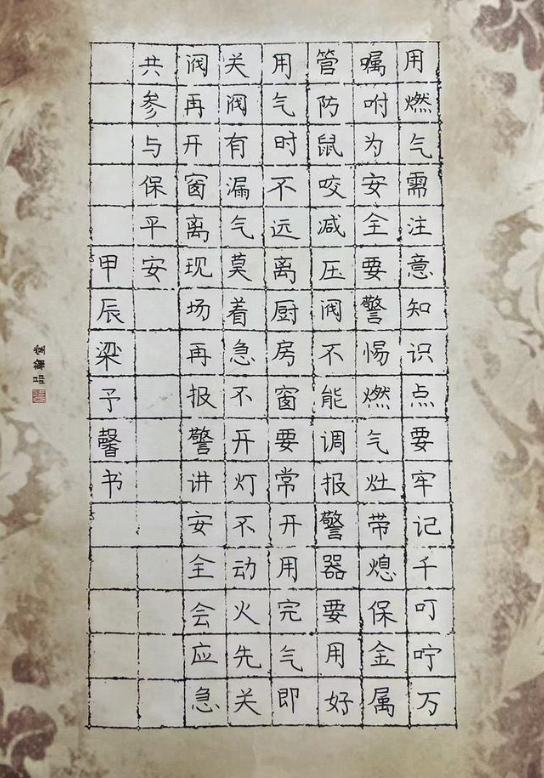 用燃气需注意知识点要牢记千叮咛万
嘱咐为安全要警惕燃气灶带熄保金属
管防鼠咬减压阀不能调报警器要用好
用气时不远离厨房窗要常开用完气即
关阀有漏气莫着急不开灯不动火先关
阀再开窗离现场再报警讲安全会应急
共参与保平安
甲辰梁予馨书